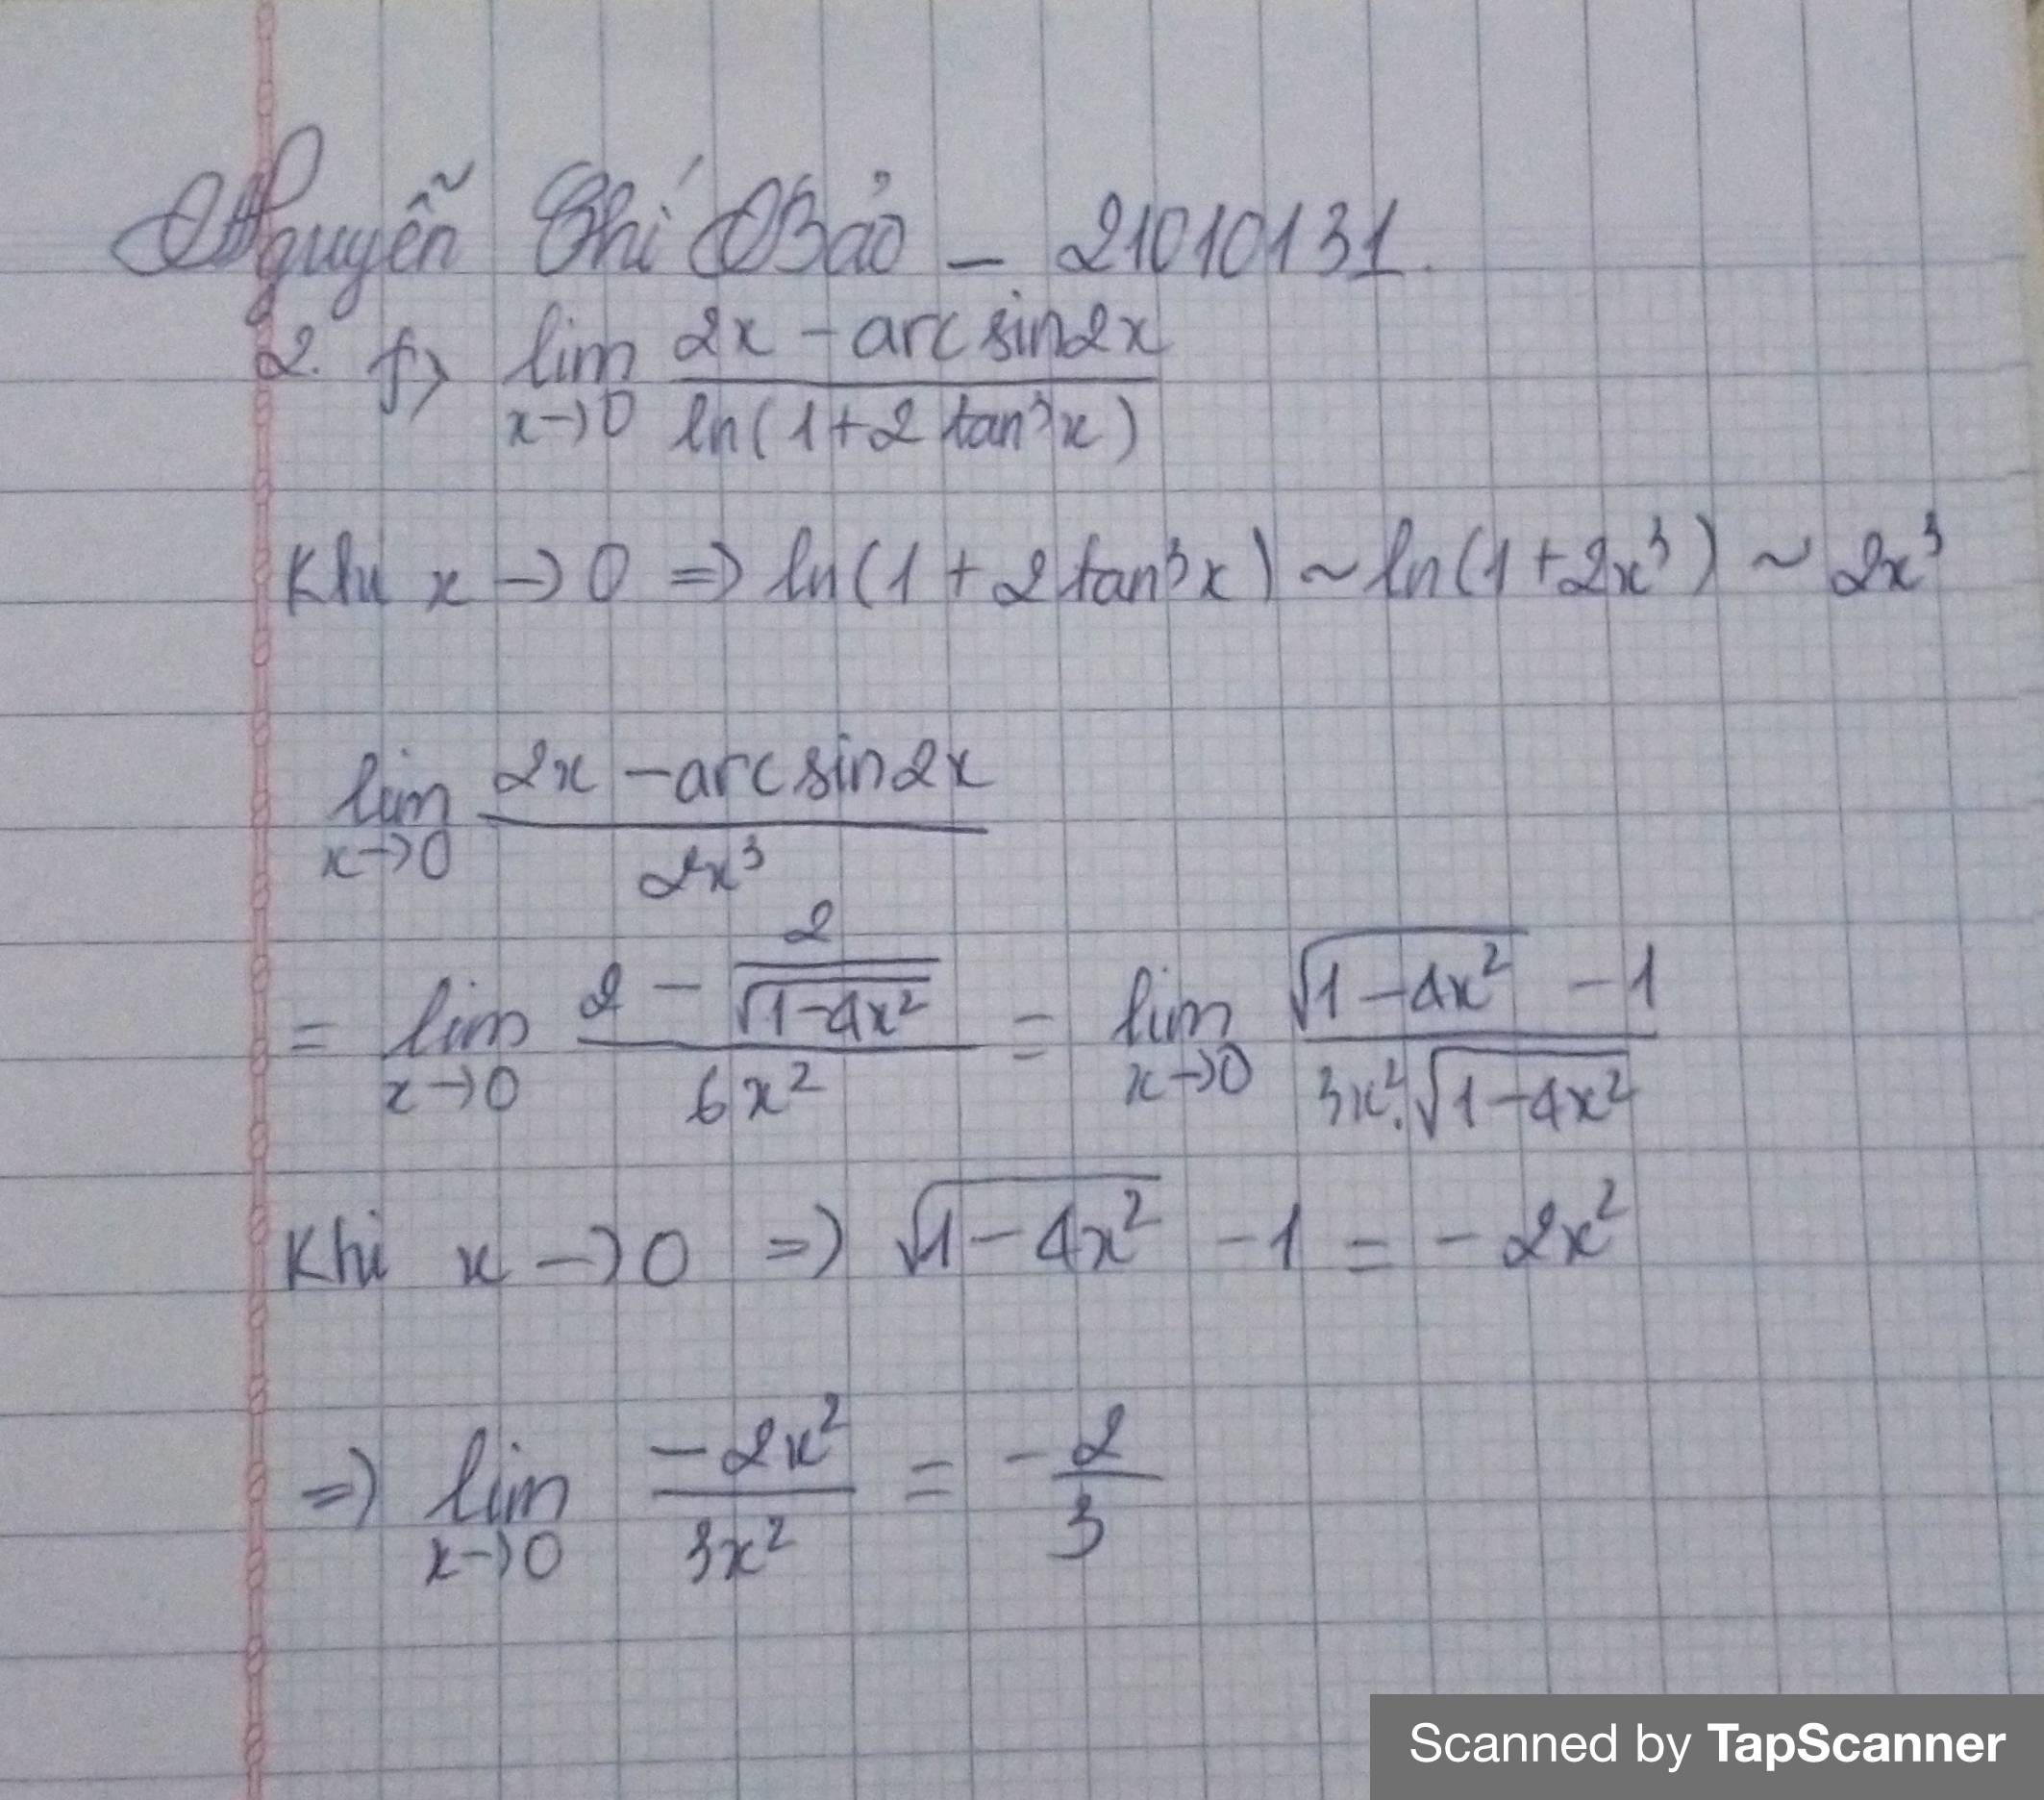 Nguyễn Chí Bảo - 21010131.
2. f> lim x→0 (2x - arcsin2x)/(ln(1+2tan³x))
Khi x → 0 ⇒ ln(1 + 2tan³x) ~ ln(1+2x³) ~ 2x³
lim x→0 (2x - arcsin2x)/(2x³)
= lim x→0 (2 - 2/√(1-4x²))/(6x²) = lim x→0 (√(1-4x²) - 1)/(3x².√(1-4x²))
Khi x → 0 ⇒ √(1-4x²) - 1 = -2x²
⇒ lim x→0 (-2x²)/(3x²) = -2/3
Scanned by TapScanner